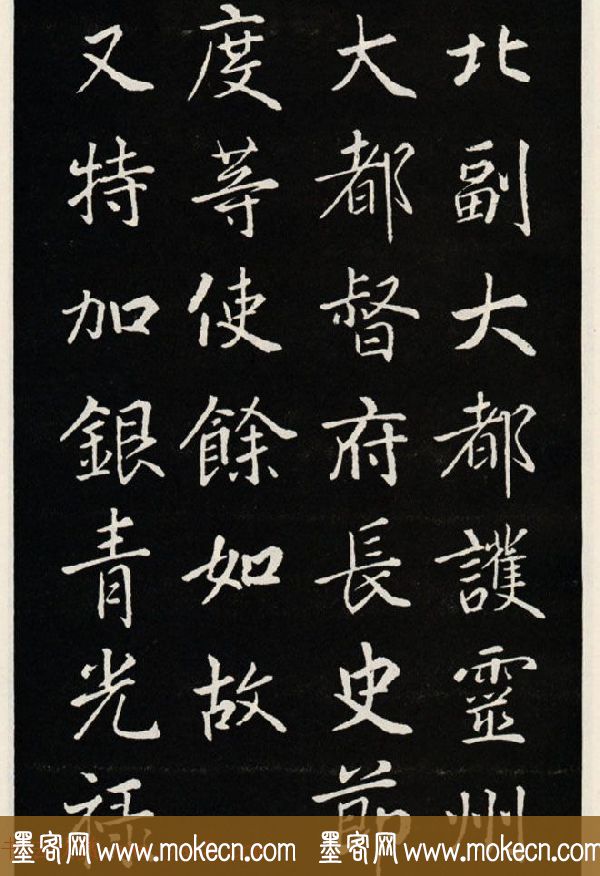 北副大都護靈州
大都督府長史節
度等使餘如故
又特加銀青光祿
墨客网 www.mokecn.com 墨客网 www.mokecn.com